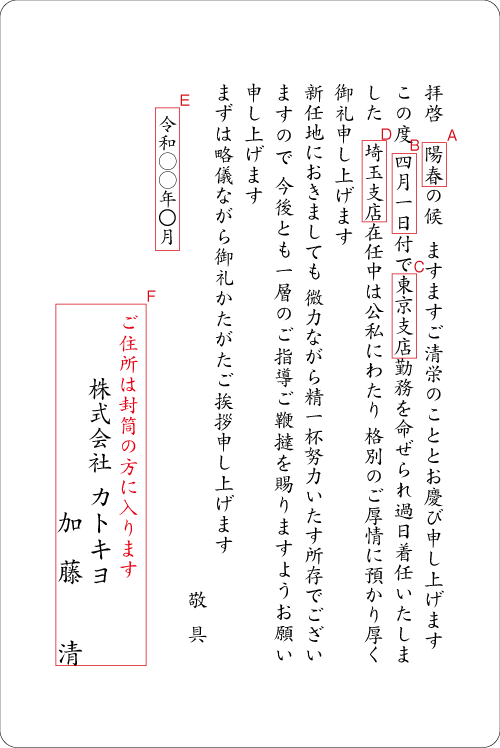 拝啓
A
陽春の候 ますますご清栄のこととお慶び申し上げます
B
C
この度四月一日付で東京支店勤務を命ぜられ過日着任いたしま
D
した 埼玉支店在任中は公私にわたり 格別のご厚情に預かり厚く
御礼申し上げます
新任地におきましても 微力ながら精一杯努力いたす所存でござい
ますので 今後とも一層のご指導ご鞭撻を賜りますようお願い
申し上げます
まずは略儀ながら御礼かたがたご挨拶申し上げます
敬具
E
令和〇〇年〇月
F
ご住所は封筒の方に入ります
株式会社 カトキヨ
加藤 清